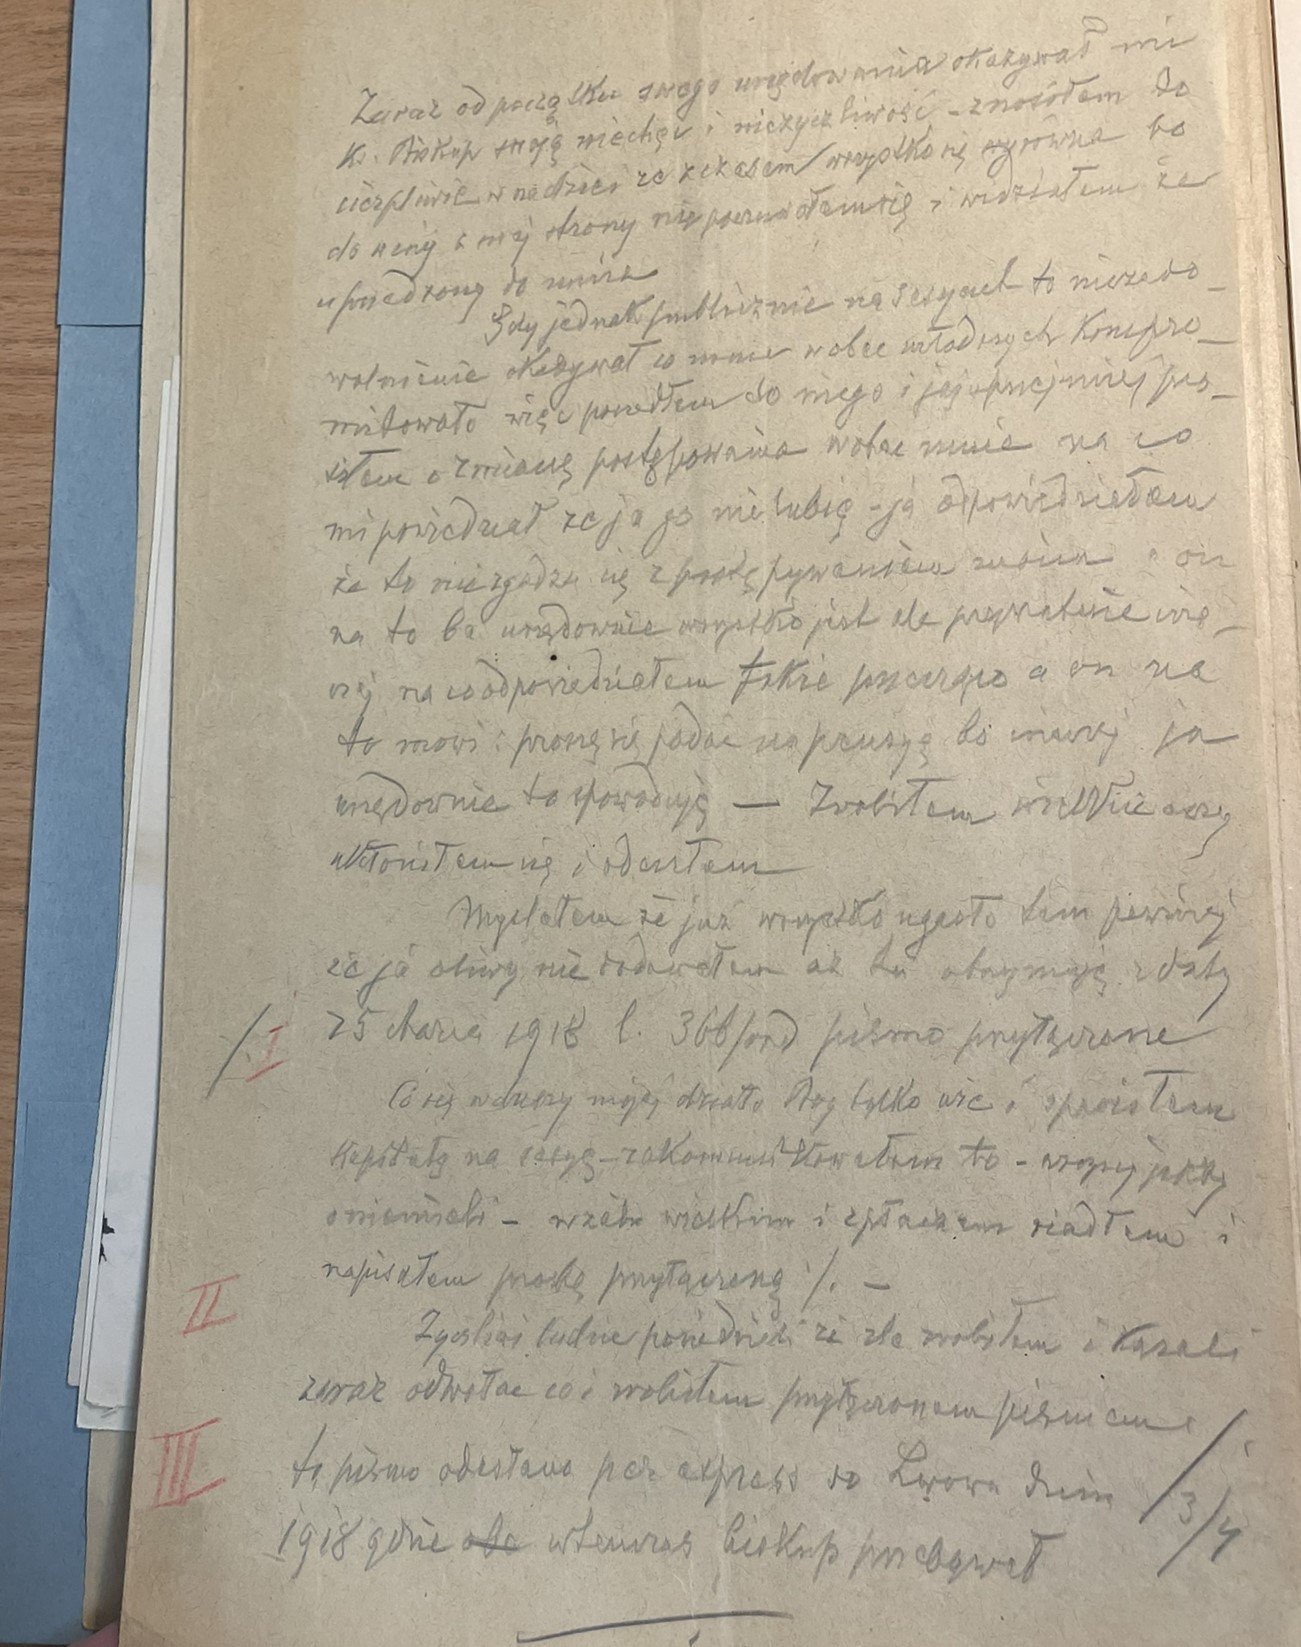 Zaraz od początku swego urzędowania okazywał mi
Ks. Biskup swoją niechęć i nieżyczliwość – znosiłem to
cierpliwie w nadzieji że z czasem wszystko się wyrówna bo
do winy z mej strony nie poczuwałem się i widziałem że
uprzedzony do mnie
Gdy jednak publicznie na sesyach to niezado-
wolnienie okazywał co mnie wobec młodszych kompro-
mitowało więc poszedłem do niego i jaknajuprzejmiej pro-
siłem o zmianę postępowania wobec mnie na co
mi powiedział że ja go nie lubię – ja odpowiedziałem
że to nie zgadza się z postępywaniem moim a on
na to ba urzędownie wszystko jest ale prywatnie ina-
czej na co odpowiedziałem takie a on na
to mowi: proszę się podać na pensyę bo inaczej ja
urzędownie to spowoduję — Zrobiłem wielkie oczy
ukłoniłem się i odeszłem
Myslałem że już wszystko ugasło tem pewniej
że ja oliwy nie dodawałem aż tu otrzymuję z daty
25 Marca 1918 l. 366/ord pismo przyłączone
/. I
Co się w duszy mojej działo Bog tylko wie i sprosiłem
kapitułę na sesyę – zakomunikowałem to – wszyscy jakby
oniemieli – w żalu wielkim i z płaczem siadłem i
napisałem prośbę przyłączoną /. –
II
Zyczliwi ludzie powiedzieli że źle zrobiłem i kazali
zaraz odwołać co i zrobiłem przyłączonem pismem /.
III
to pismo odesłano per express do Lwowa dnia 3/4
1918 gdzie wtenczas biskup przebywał